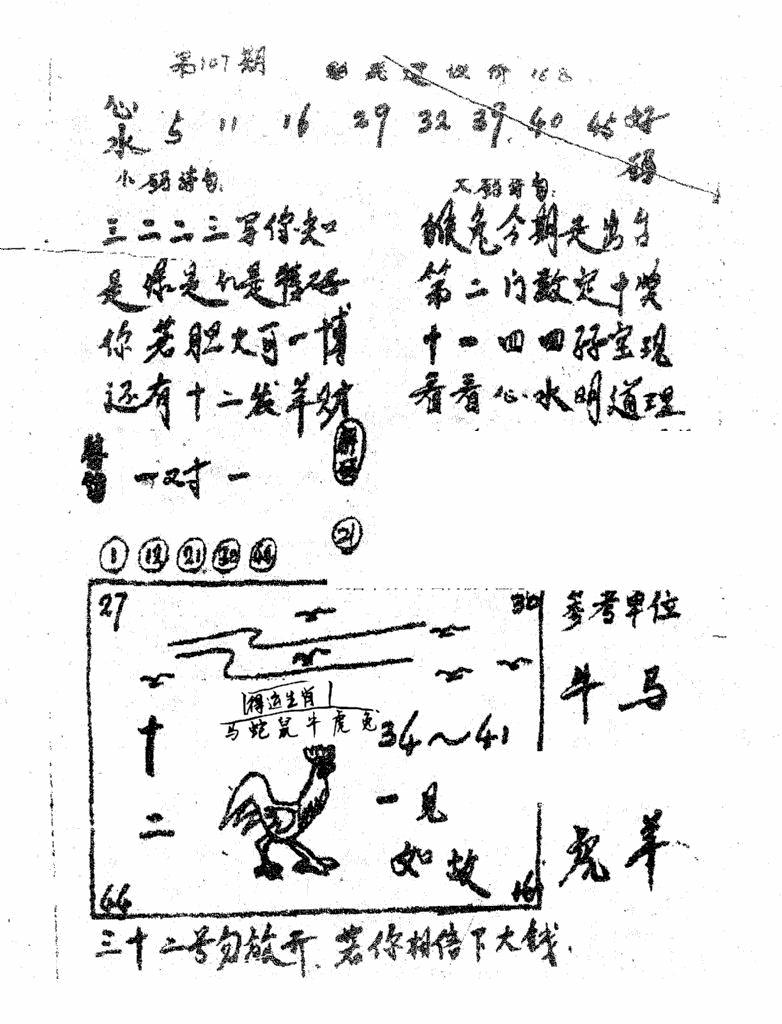 第107期
心水 5 11 16 29 32 39 40 45 好码
小码诗句:
大码诗句:
三二二三写你知
是爆是ル是特码
你若胆大可一博
还有十二发羊财
猴兔今期是出
第二门数定中奖
十一四四孖宝现
看看心水明道理
一对一
21
1 12 21 44
27
30
参考单位
牛马
得运生肖
马蛇鼠牛虎兔
34～41
十二
一见如故
虎羊
44
16
三十二号勿放开、若你相信下大钱.